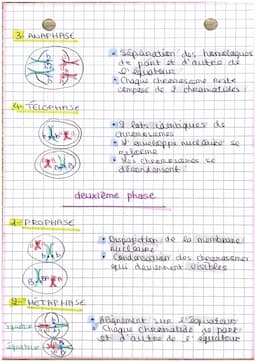 3- ANAPHASE
• Séparation des homologues
de part et d'autre de
l'équateur
• Chaque chromosome reste
composé de 2 chromatides
4- TELOPHASE
• 2 lots identiques de
chromosomes
• L'enveloppe nucléaire se
reforme
• Les chromosomes se
décondensent
deuxième phase
1- PROPHASE
• Disparition de la membrane
nucléaire
• Condensation des chromosomes
qui deviennent visibles
2- METAPHASE
• Alignement sur l'équateur
• Chaque chromatide de part
et d'autre de l'équateur
équateur
équateur